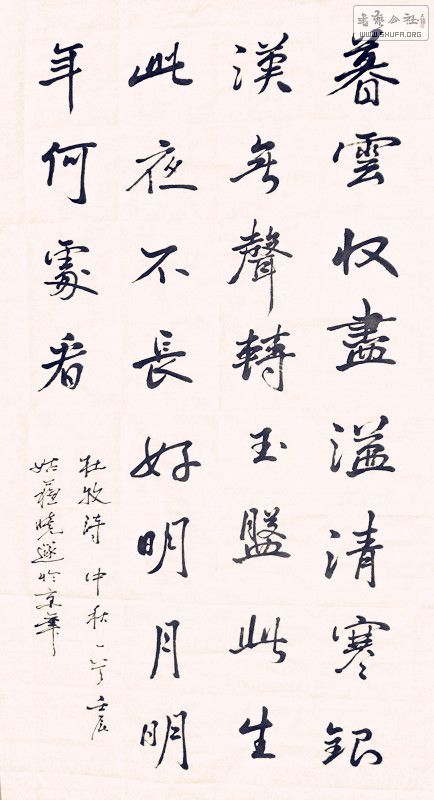 暮雲收盡溢清寒銀
漢無聲轉玉盤此生
此夜不長好明月明
年何處看
杜牧詩中秋一首壬辰
姑蘇曉遜於京華
書藝公社
WWW.SHUFA.ORG